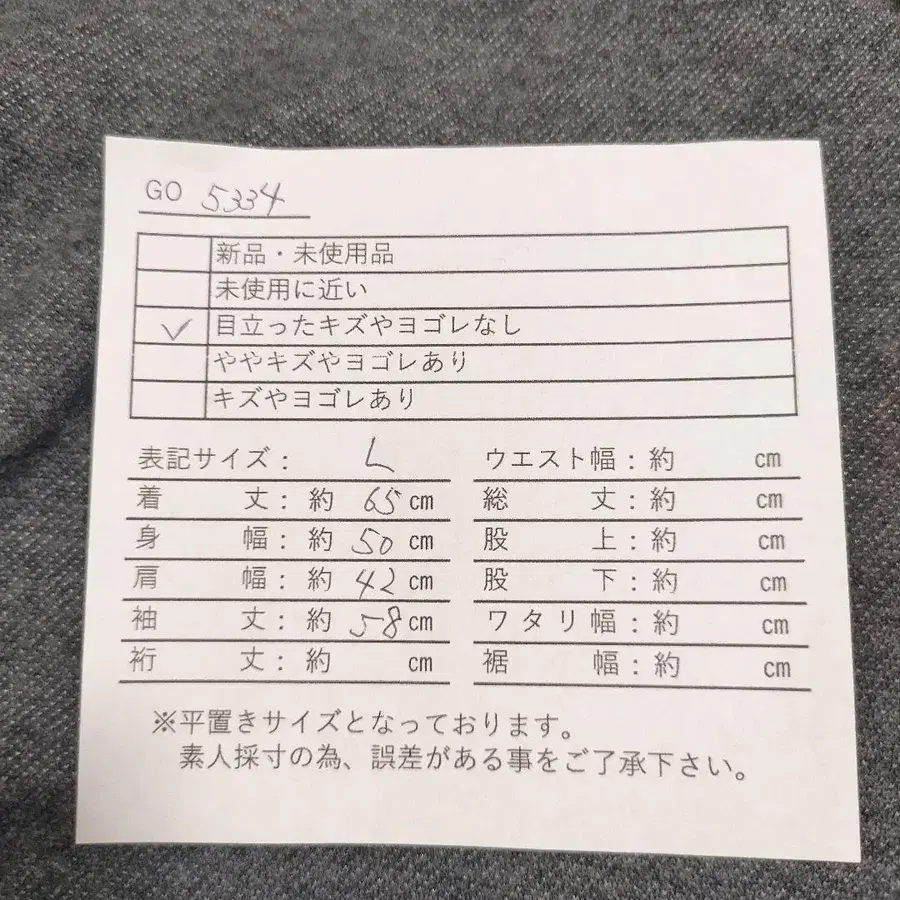 GO 5334
新品・未使用品
未使用に近い
✓ 目立ったキズやヨゴレなし
ややキズやヨゴレあり
キズやヨゴレあり
表記サイズ: L
着丈:約 65 cm
身幅:約 50 cm
肩幅:約 42 cm
袖丈:約 58 cm
裄丈:約 cm
ウエスト幅:約 cm
総丈:約 cm
股上:約 cm
股下:約 cm
ワタリ幅:約 cm
裾幅:約 cm
※平置きサイズとなっております。
素人採寸の為、誤差がある事をご了承下さい。